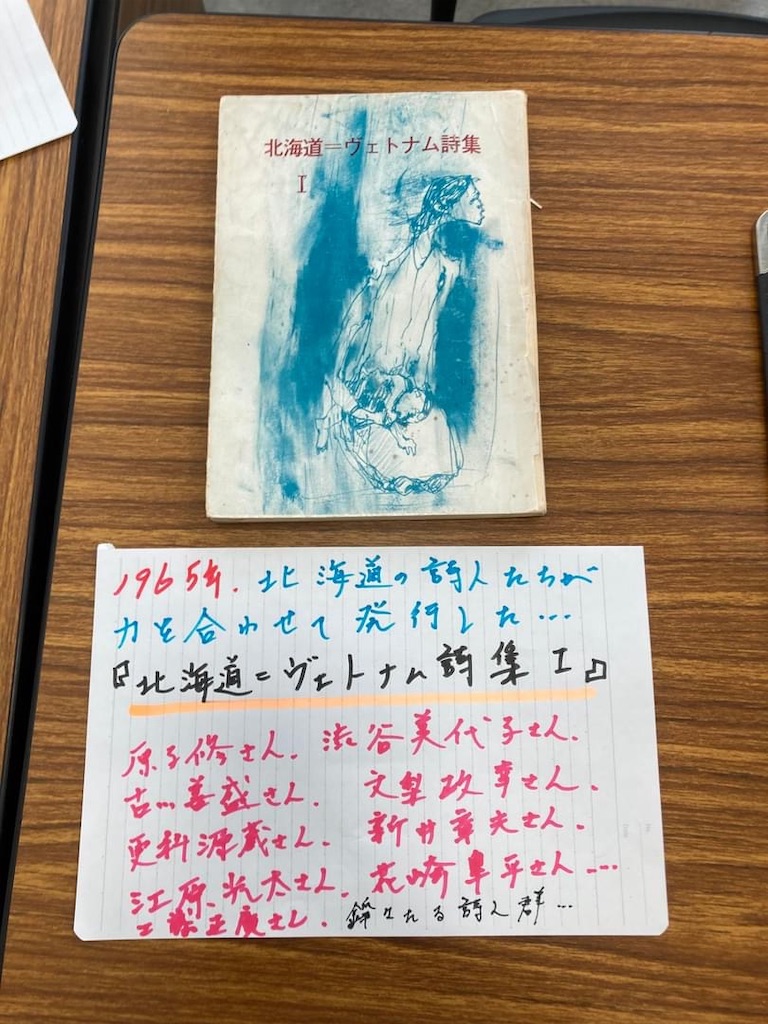 北海道=ヴェトナム詩集
I
1965年.北海道の詩人たちが
力を合わせて発行した…
『北海道=ヴェトナム詩集 I』
原子修さん. 渋谷美代子さん.
古川善盛さん. 文梨政幸さん.
更科源蔵さん. 新井章夫さん.
江原光太さん. 花崎皋平さん…
工藤正廣さん. 錚々たる詩人群…